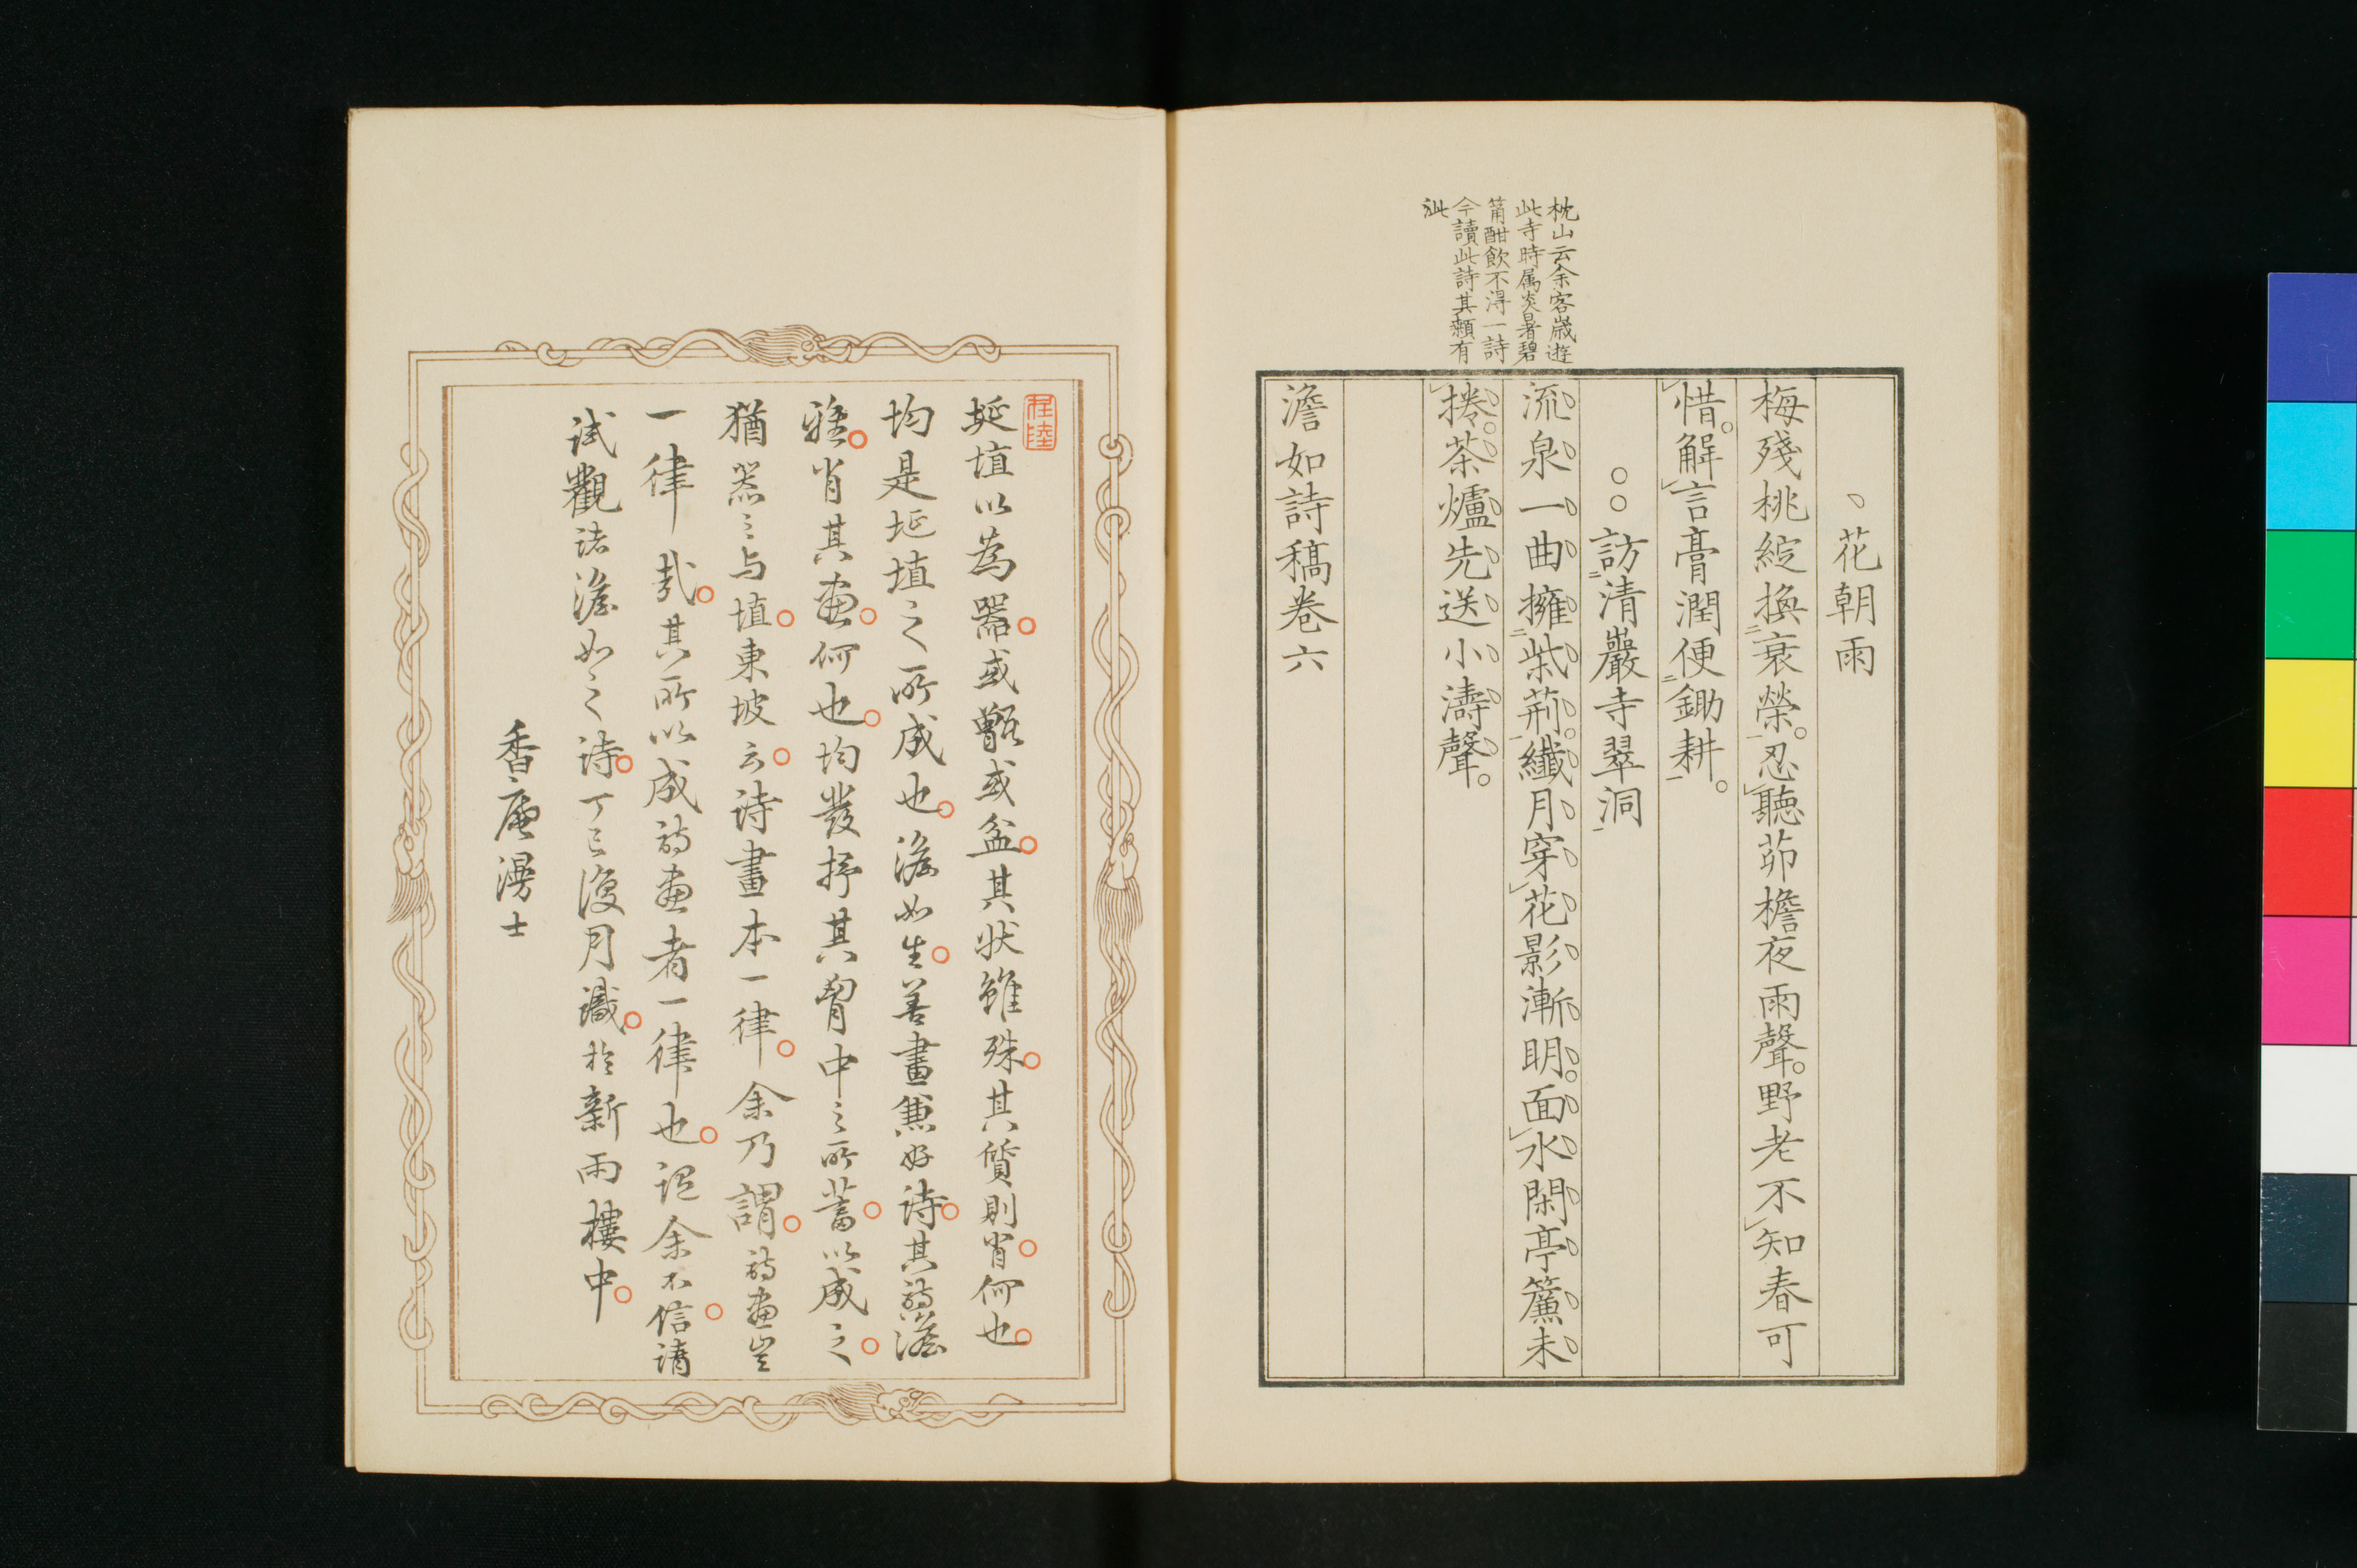 枕山云余客歳遊
此寺時属炎暑碧
筩酣飲不得一詩
今讀此詩其顙有
泚
花朝雨
梅殘桃綻換衰榮忍聽茆檐夜雨聲野老不知春可
惜解言膏潤便鋤耕
訪清嚴寺翠洞
流泉一曲擁柴荊纖月穿花影漸明面水閑亭簾未
捲茶爐先送小濤聲
澹如詩稿卷六
埏埴以為器或甑或盆其状雖殊其質則肖何也
均是埏埴之所成也澹如生善畫兼好詩其詩澹
雅肖其画何也均發抒其胸中之所蓄以成之
猶器之与埴東坡云詩畫本一律余乃謂詩画豈
一律哉其所以成詩画者一律也謂余不信請
試觀諸澹如之詩丁巳復月識於新雨樓中
香庵漫士